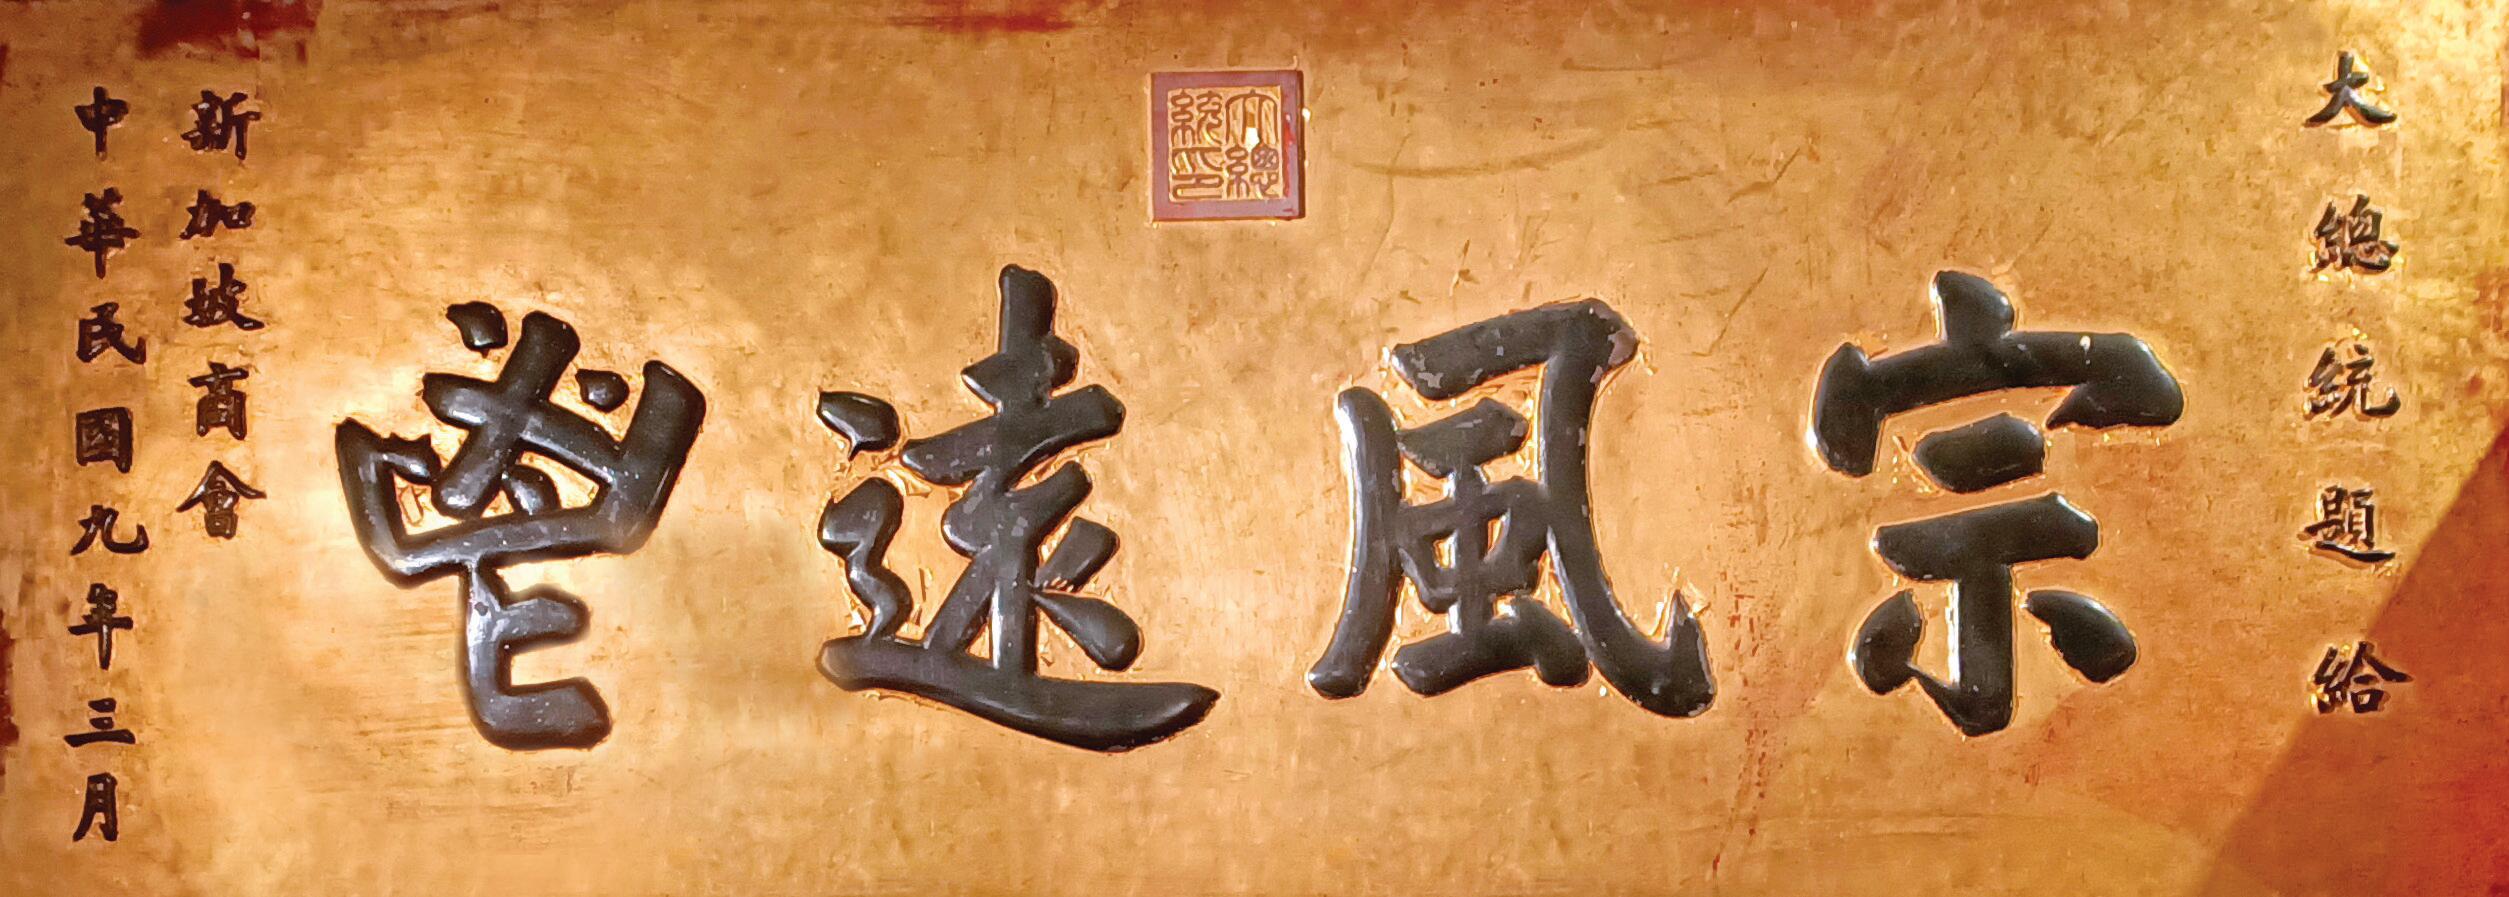 大總統題給
大總統印
宗風遠鬯
新加坡商會
中華民國九年三月